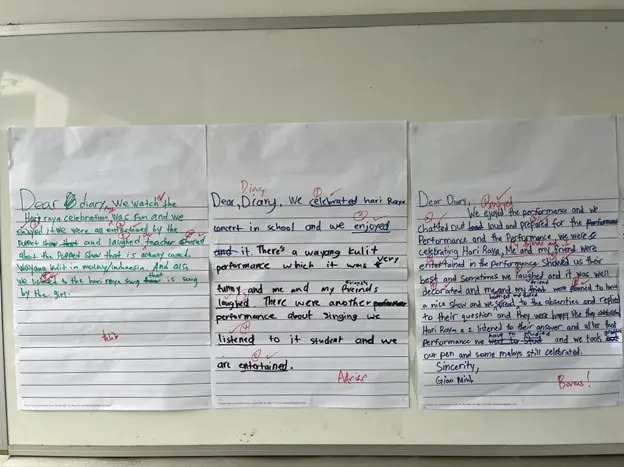 Dear diary, We watch the
Hari raya celebration, was fun and we
enjoyed it. We were all entertained by the
puppet show and laughed, teacher shared
about the puppet show that is actually called
wayang kulit in malay/indonesia. And also
we listened to the hari raya song that is sung
by the girl.
Diary
Dear, Diany, We celebrated hari Raya
concert in school and we enjoyed
and it. There's a wayang kulit
performance which it was very
funny and me and my friend's
laughed. There were another
performance about singing we
listened to it student and we
are entertained.
Adrian
Dear Diary,
enjoyed
We ejoyed the performance and we
chatted out loud and prepared for the
Performance and the Performance we were
celebrating Hari Raya, Me and my friend were
entertained in the performance showed us their
best and sometimes we laughed and it was well
decorated and me and my friend were pleased to have
a nice show and we to the absenties and replied
to their question and they were happy
Hari Raya a I listened to their answer and after that
Performance we and we took out
our pen and some malays still celebrated.
Sincerity,
Giao Minh
Bonus!